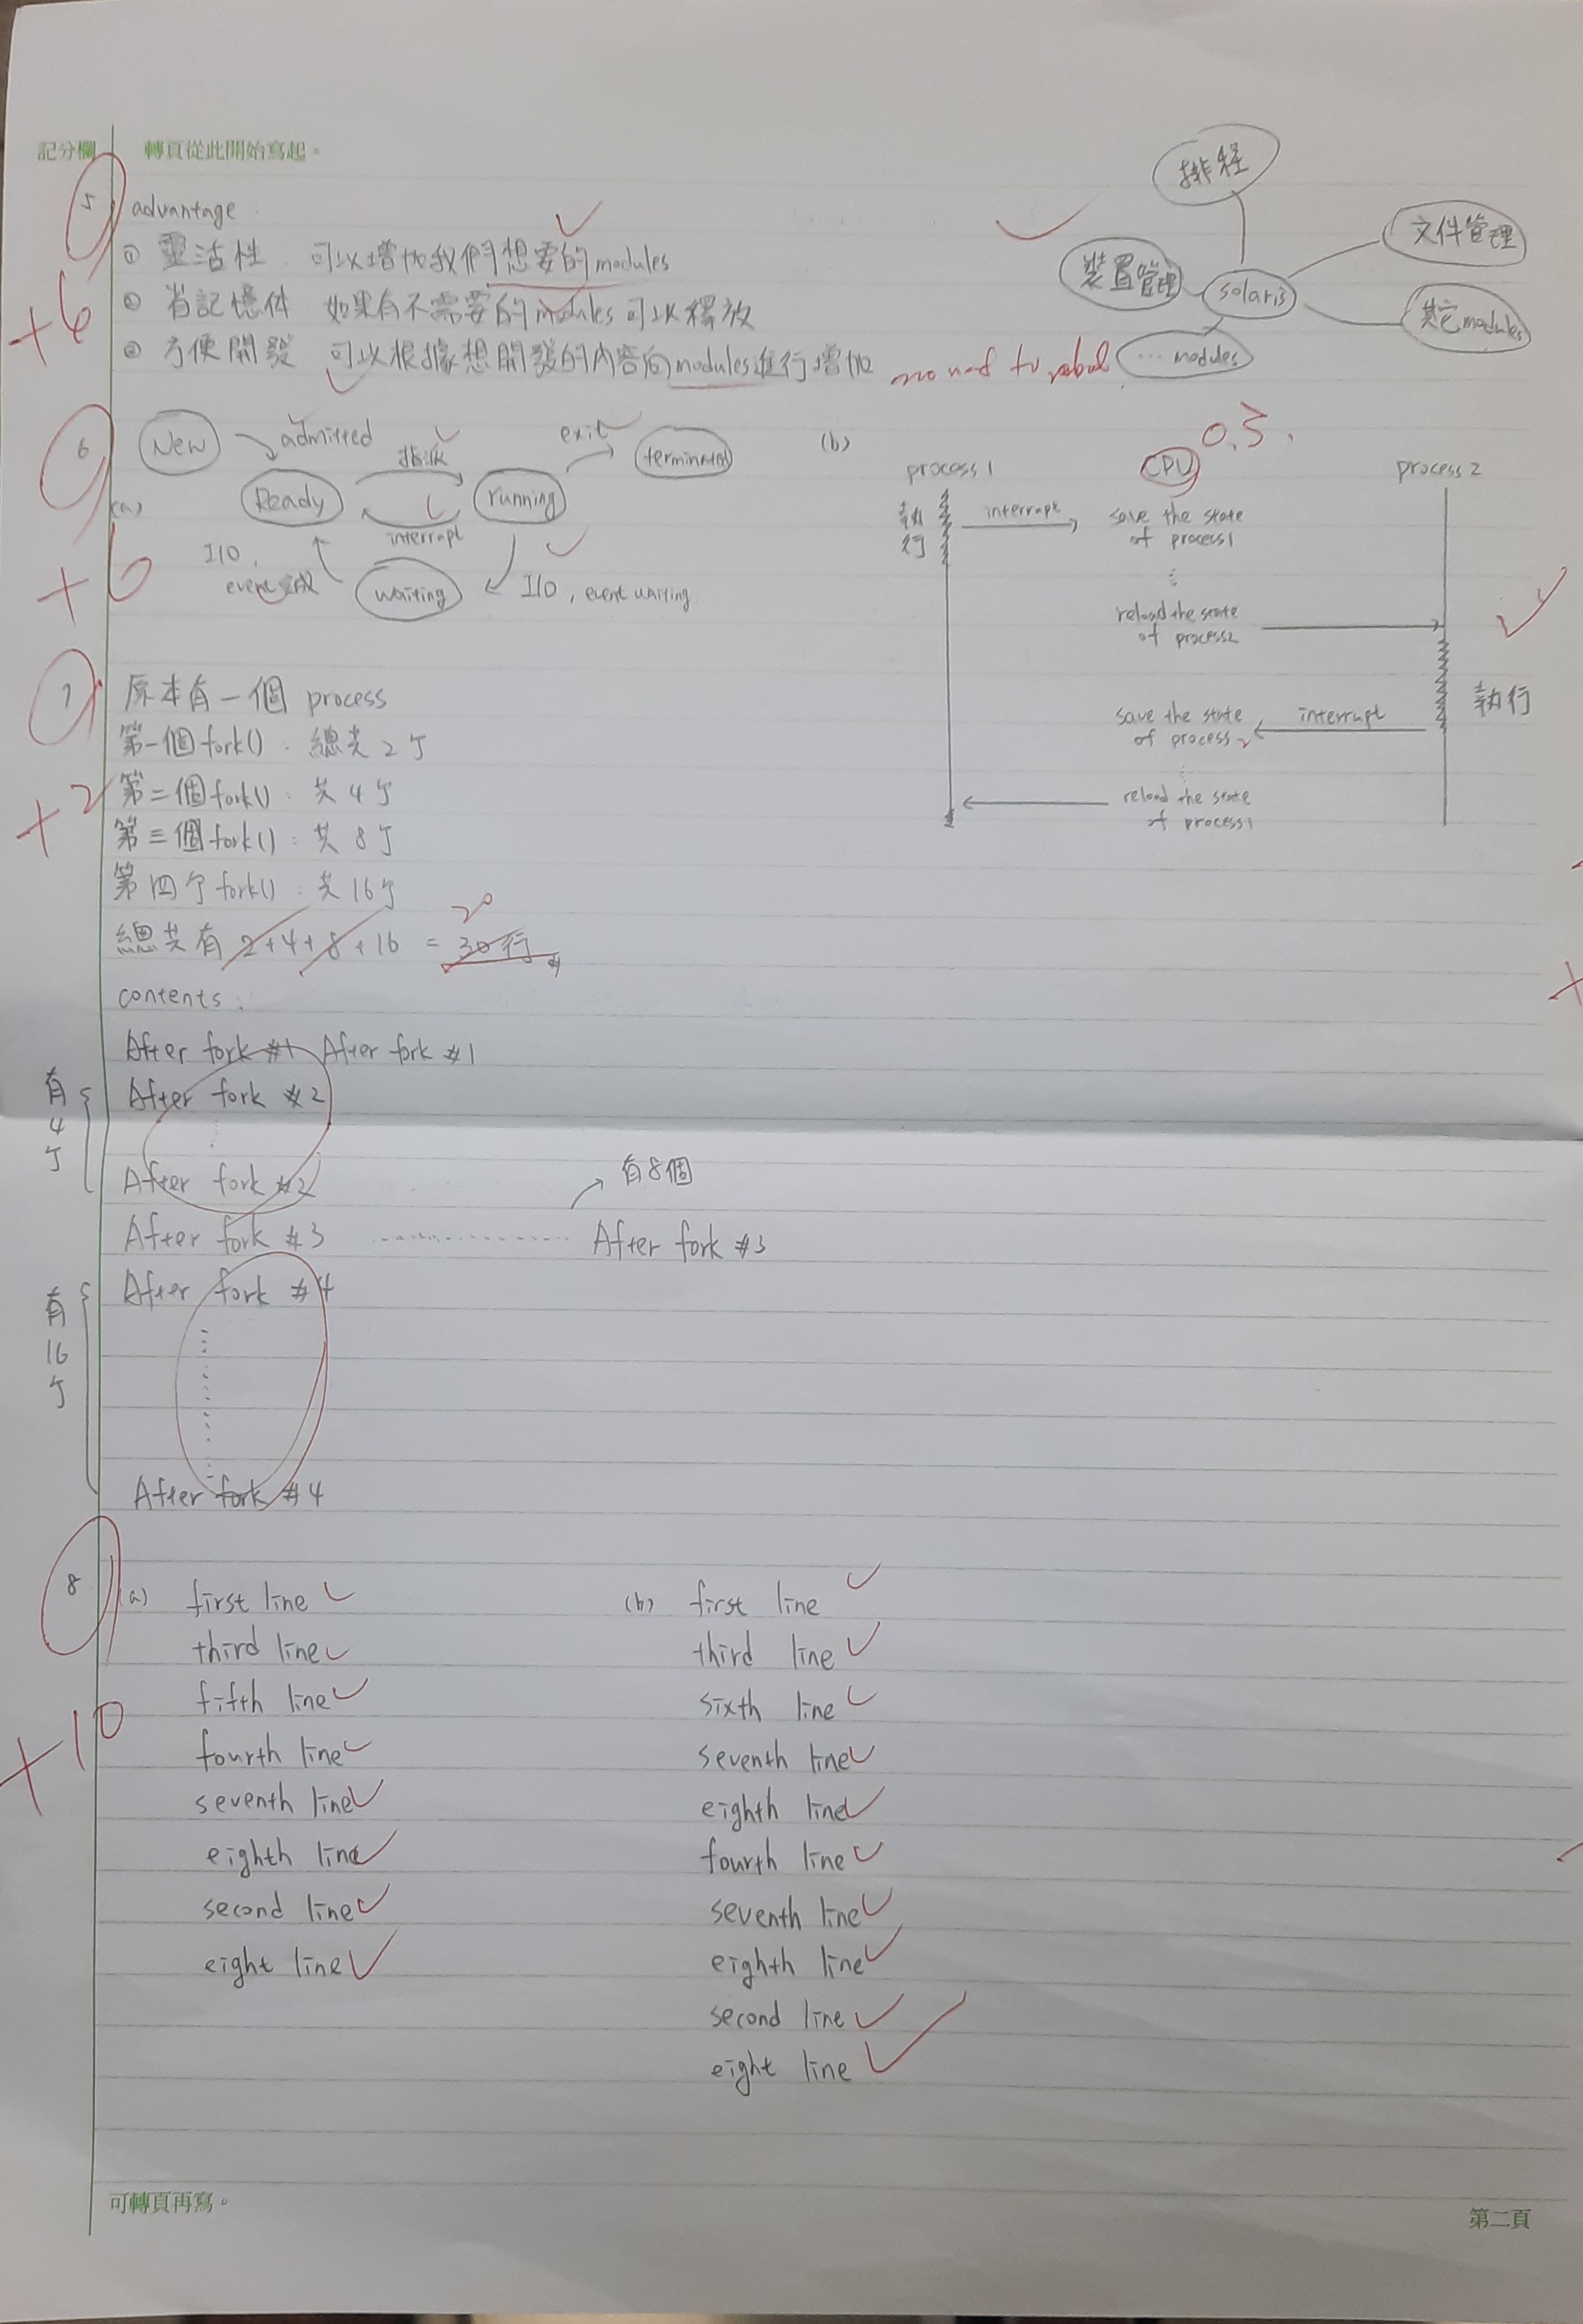 記分欄
轉頁從此開始寫起。
5
advantage
① 靈活性 可以增加我們想要的modules
② 省記憶体 如果有不需要的modules可以釋放
③ 方便開發 可以根據想開發的內容向modules進行增加
no need to
+6
排程
文件管理
裝置管理
solaris
其它modules
... modules
6
(a)
New
admitted
Ready
指派
running
exit
terminated
interrupt
I/O,
event完成
waiting
I/O, event waiting
+6
(b)
0.S.
process 1
CPU
process 2
執行
interrupt
save the state
of process1
reload the state
of process2
執行
save the state
of process 2
interrupt
reload the state
of process1
7
原本有一個 process
第一個fork() : 總共 2个
第二個fork() : 共 4个
第三個fork() : 共 8个
第四个fork() : 共 16个
總共有 2+4+8+16 = 30行
20
+2
contents :
After fork #1 After fork #1
After fork #2
有4个
After fork #2
有8個
After fork #3 ............... After fork #3
After fork #4
有16个
After fork #4
8
+10
(a) first line
third line
fifth line
fourth line
seventh line
eighth line
second line
eight line
(b) first line
third line
sixth line
seventh line
eighth line
fourth line
seventh line
eighth line
second line
eight line
可轉頁再寫。
第二頁